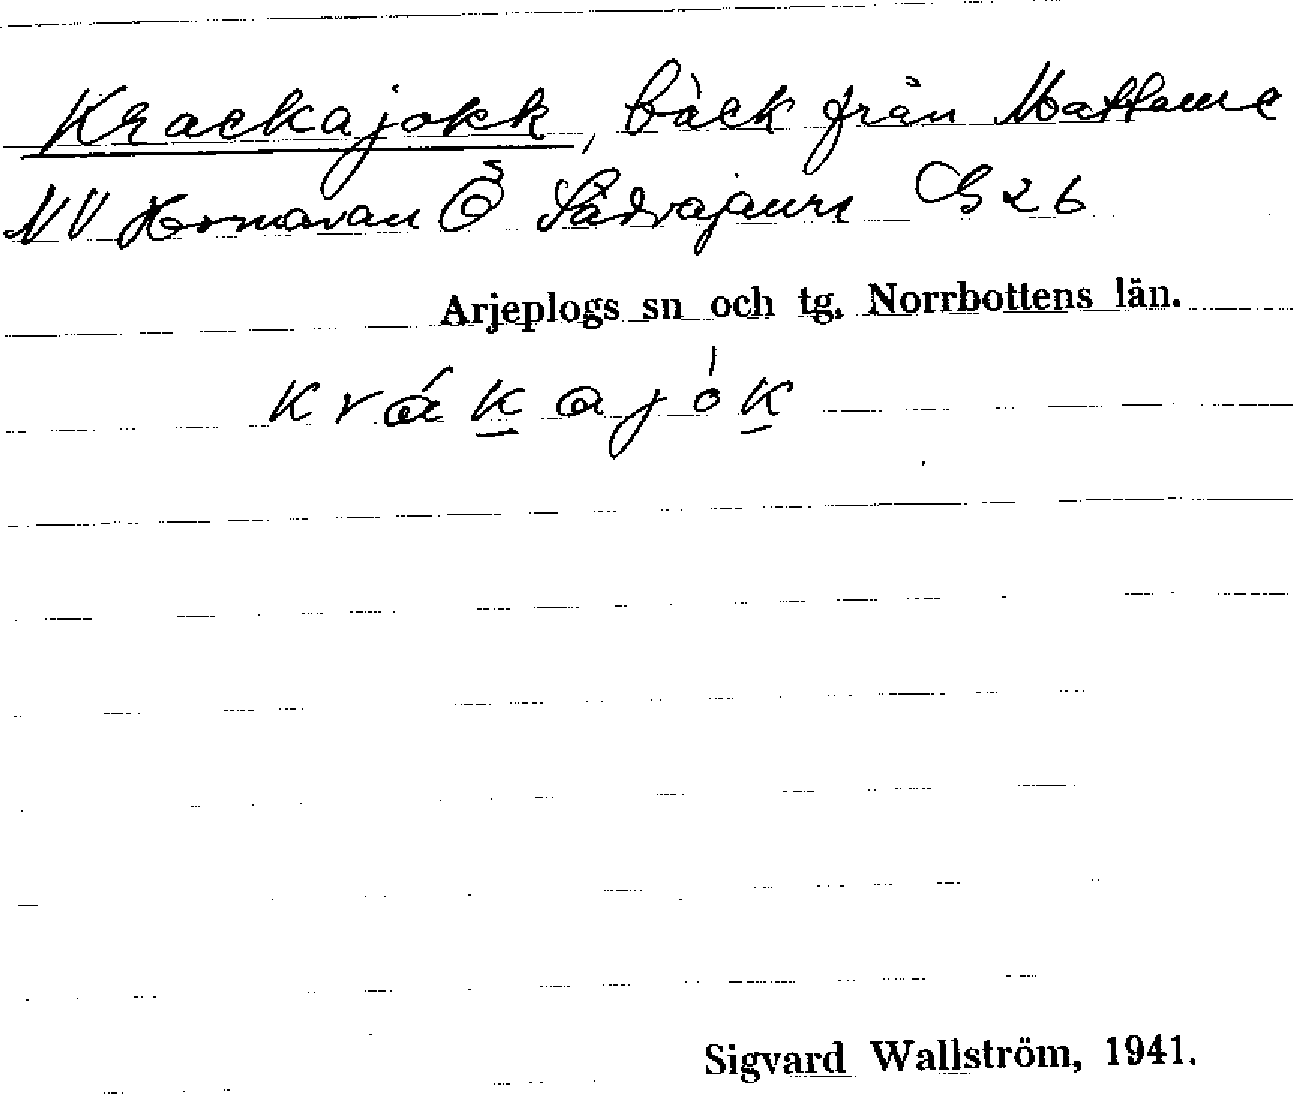 Krackajokk, bäck från Mattaure
NV Hornavan Ö Sädvajaure G 26
Arjeplogs sn och tg. Norrbottens län.
krákajók
Sigvard Wallström, 1941.